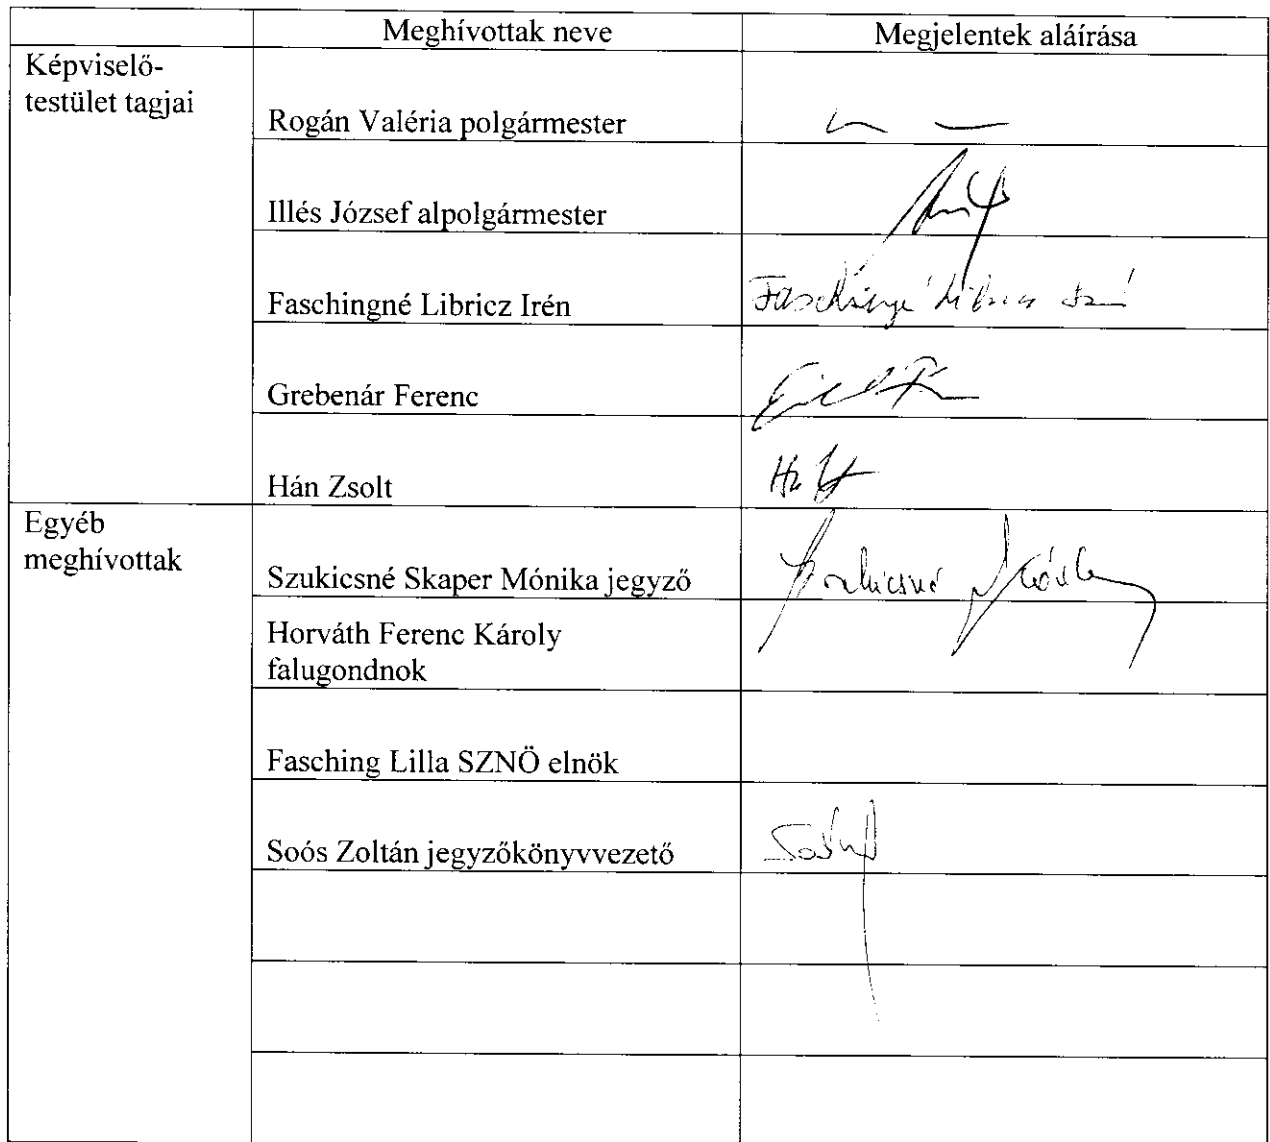 Meghívottak neve
Megjelentek aláírása
Képviselő-
testület tagjai
Rogán Valéria polgármester
Illés József alpolgármester
Faschingné Libricz Irén
Grebenár Ferenc
Hán Zsolt
Egyéb
meghívottak
Szukicsné Skaper Mónika jegyző
Horváth Ferenc Károly
falugondnok
Fasching Lilla SZNÖ elnök
Soós Zoltán jegyzőkönyvvezető